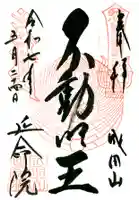 奉拝
成田山
不動明王
令和七年
五月二四日
延命院